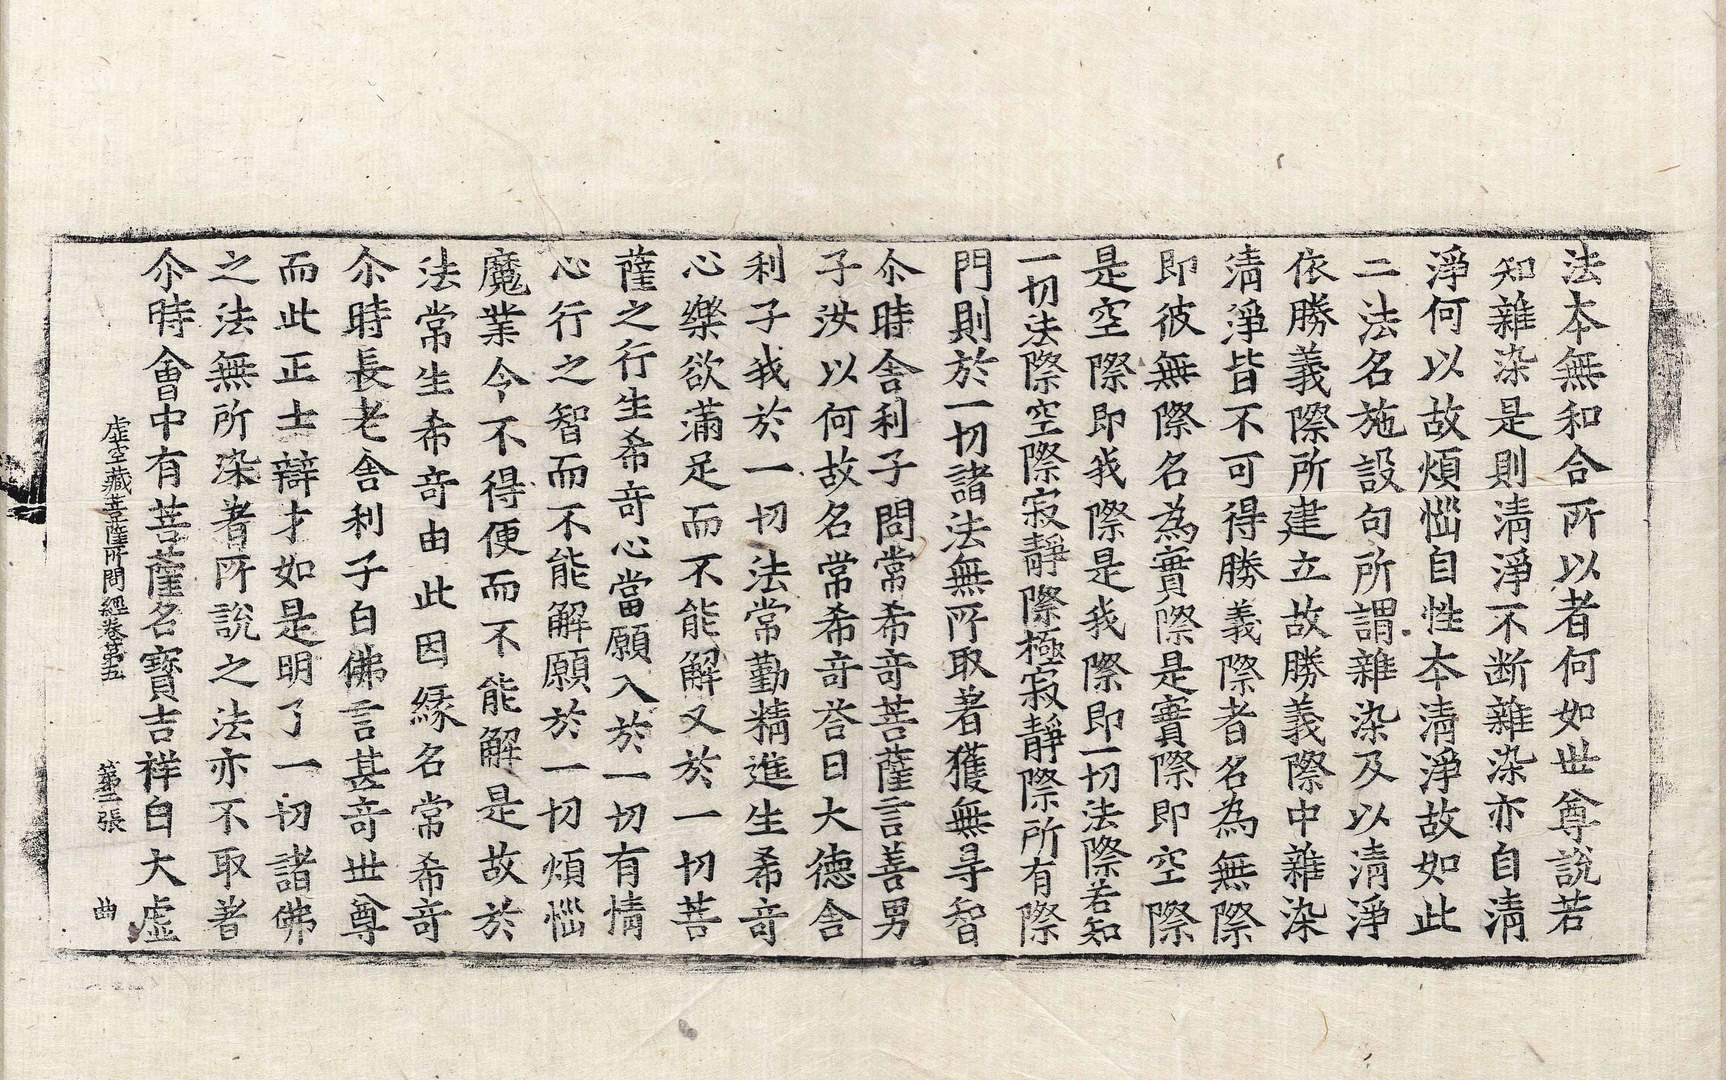 法本無和合所以者何如世尊說若
知雜染是則清淨不断雜染亦自清
淨何以故煩惱自性本清淨故如此
二法名施設句所謂雜染及以清淨
依勝義際所建立故勝義際中雜染
清淨皆不可得勝義際者名為無際
即彼無際名為實際是實際即空際
是空際即我際是我際即一切法際若知
一切法際空際寂靜際極寂靜際所有際
門則於一切諸法無所取著獲無㝵智
尒時舎利子問常希竒菩薩言善男
子汝以何故名常希竒荅曰大德舎
利子我於一切法常勤精進生希竒
心樂欲滿足而不能解又於一切菩
薩之行生希竒心當願入於一切有情
心行之智而不能解願於一切煩惱
魔業今不得便而不能解是故於
法常生希竒由此因緣名常希竒
尒時長老舎利子白佛言甚竒世尊
而此正士辯才如是明了一切諸佛
之法無所染著所說之法亦不取著
尒時會中有菩薩名寶吉祥白大虛
虛空藏菩薩所問經卷第五 第二張 曲